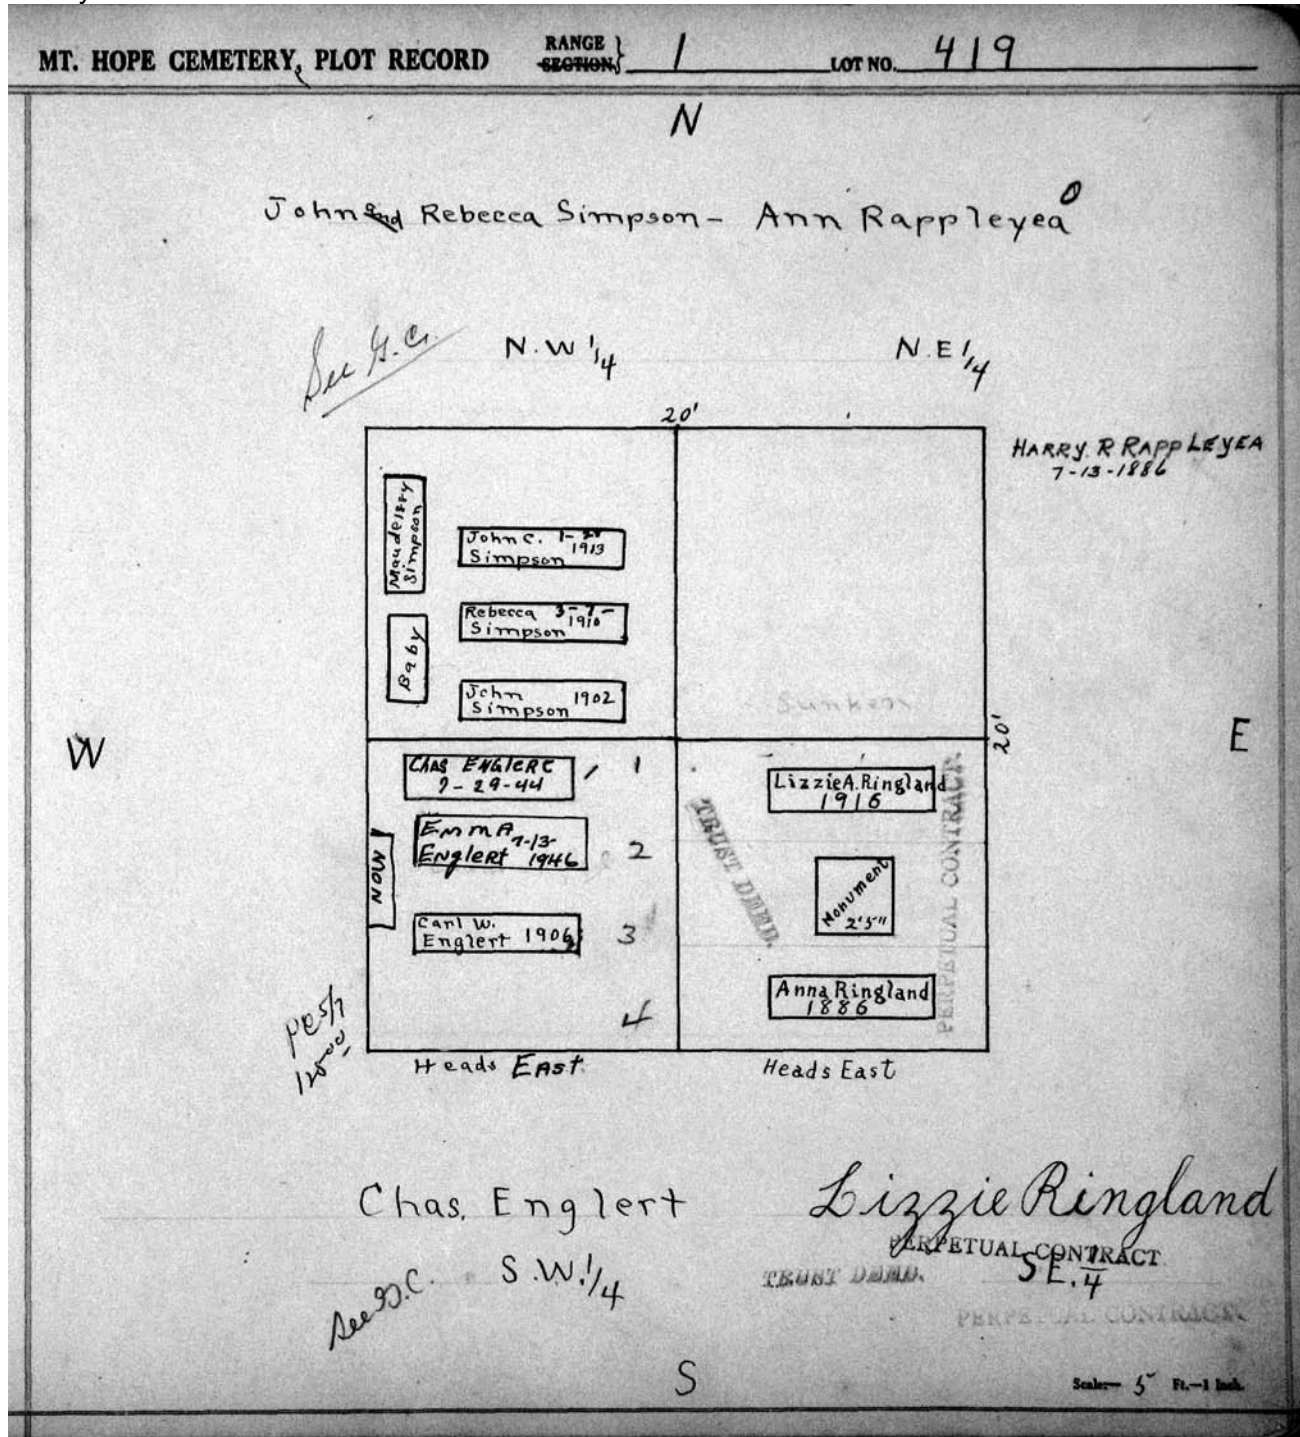 MT. HOPE CEMETERY, PLOT RECORD RANGE SECTION } 1 LOT NO. 419
N
John and Rebecca Simpson - Ann Rappleyea
See G.C.
N.W 1/4
N.E 1/4
20'
HARRY. R RAPPLEYEA
7-13-1886
Simpson
John C. 1-
1913
Simpson
Rebecca 3-7-
1910
Simpson
Baby
John 1902
Simpson
Sunken
W
20'
E
CHAS ENGLERT
7-29-44
1
EMMA 7-13-
Englert 1946
2
MON
Carl W.
Englert 1906
3
4
Lizzie A. Ringland
1916
TRUST DEED.
Monument
2'5"
PERPETUAL CONTRACT.
Anna Ringland
1886
Heads EAST.
Heads East
Chas. Englert
Lizzie Ringland
PERPETUAL CONTRACT
See G.C.
S.W. 1/4
TRUST DEED.
S E. 1/4
PERPETUAL CONTRACT.
S
Scale:— 5 Ft.—1 Inch.